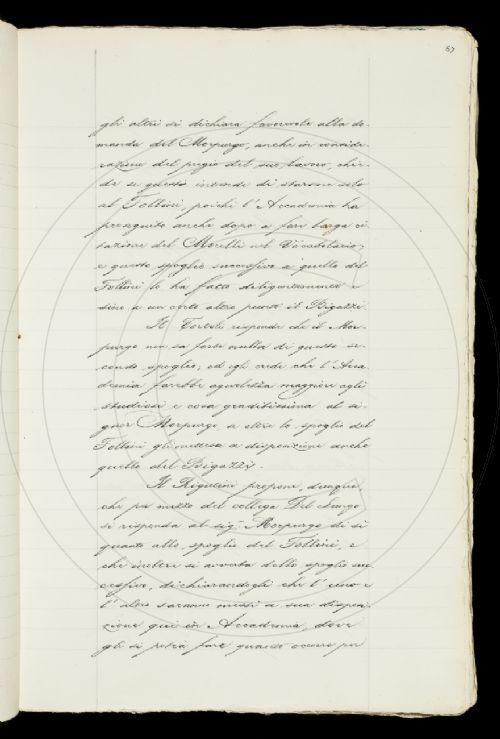 67
gli altri si dichiara favorevole alla do-
manda del Morpurgo, anche in conside-
razione del pregio del suo lavoro, chie-
de se questo intende di starsene solo
al Follini, poiché l'Accademia ha
proseguito anche dopo a fare larga ci-
tazione del Morelli nel Vocabolario;
e questo spoglio successivo a quello del
Follini lo ha fatto diligentemente e
sino a un certo altro punto il Bigazzi.
Il Tortoli risponde che il Mor-
purgo non sa forse nulla di questo se-
condo spoglio; ed egli crede che l'Acca-
demia farebbe agevolezza maggiore agli
studiosi e cosa graditissima al si-
gnor Morpurgo, se oltre lo spoglio del
Follini gli mettesse a disposizione anche
quello del Bigazzi.
Il Rigutini propone, dunque,
che per mezzo del collega Del Lungo
si risponda al sig. Morpurgo di sì
quanto allo spoglio del Follini, e
che inoltre si avverta dello spoglio suc-
cessivo, dichiarandogli che l'uno e
l'altro saranno messi a sua disposi-
zione qui in Accademia, dove
gli si potrà fare quanto occorre per